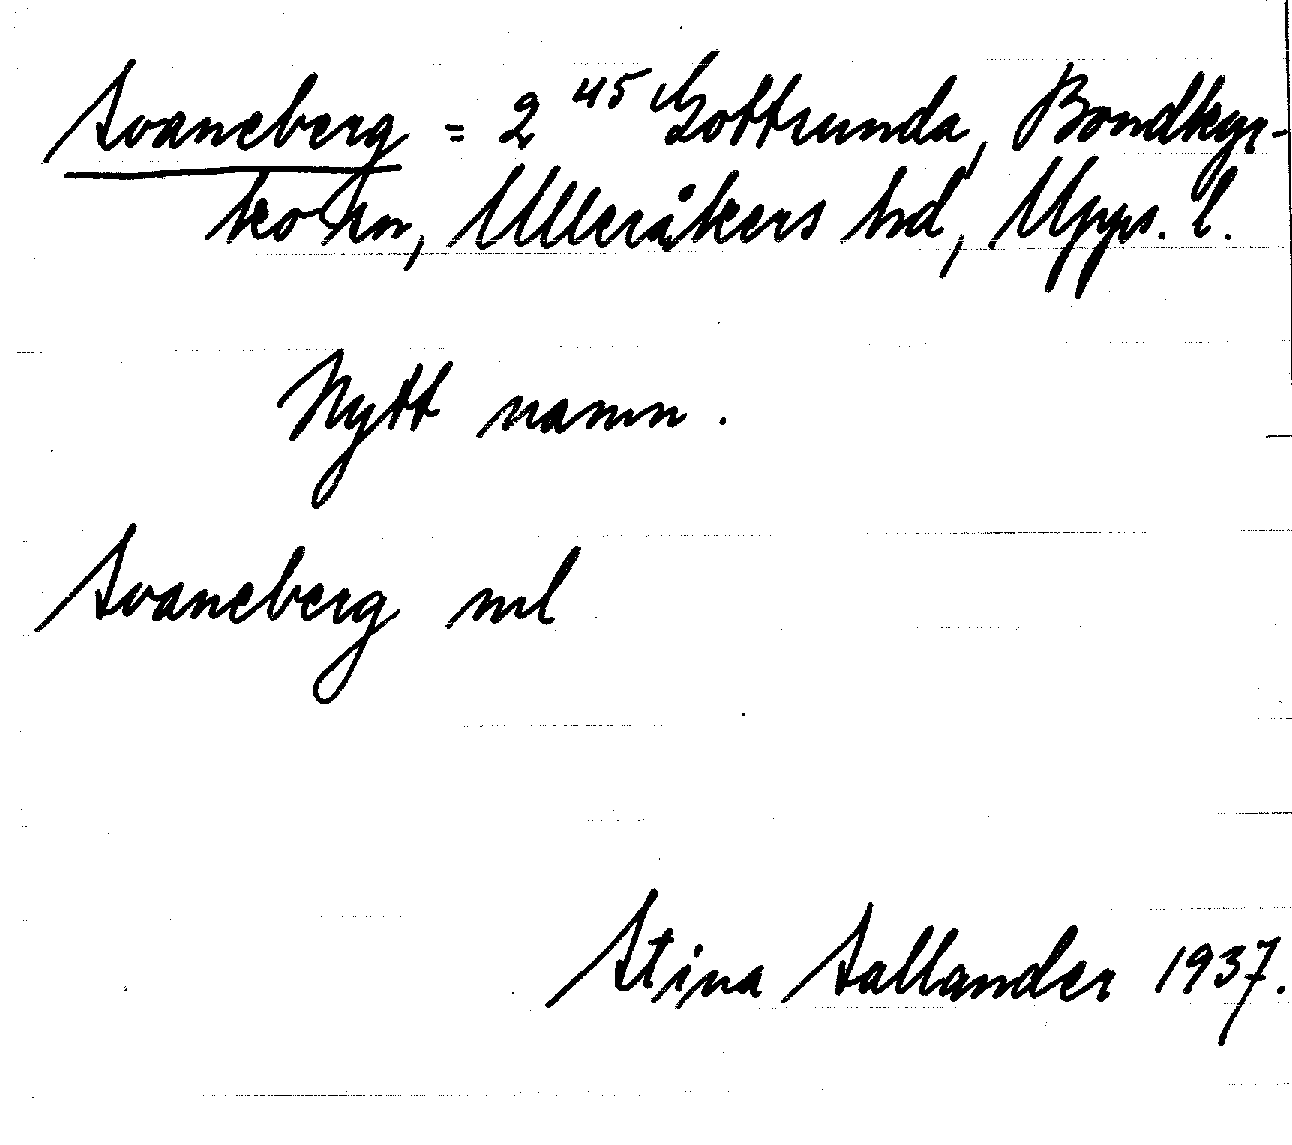 Svaneberg = 2⁴⁵ Gottsunda, Bondkyr-
ko sn, Ulleråkers hd, Upps. l.
Nytt namn.
Svaneberg
Stina Sallander 1937.